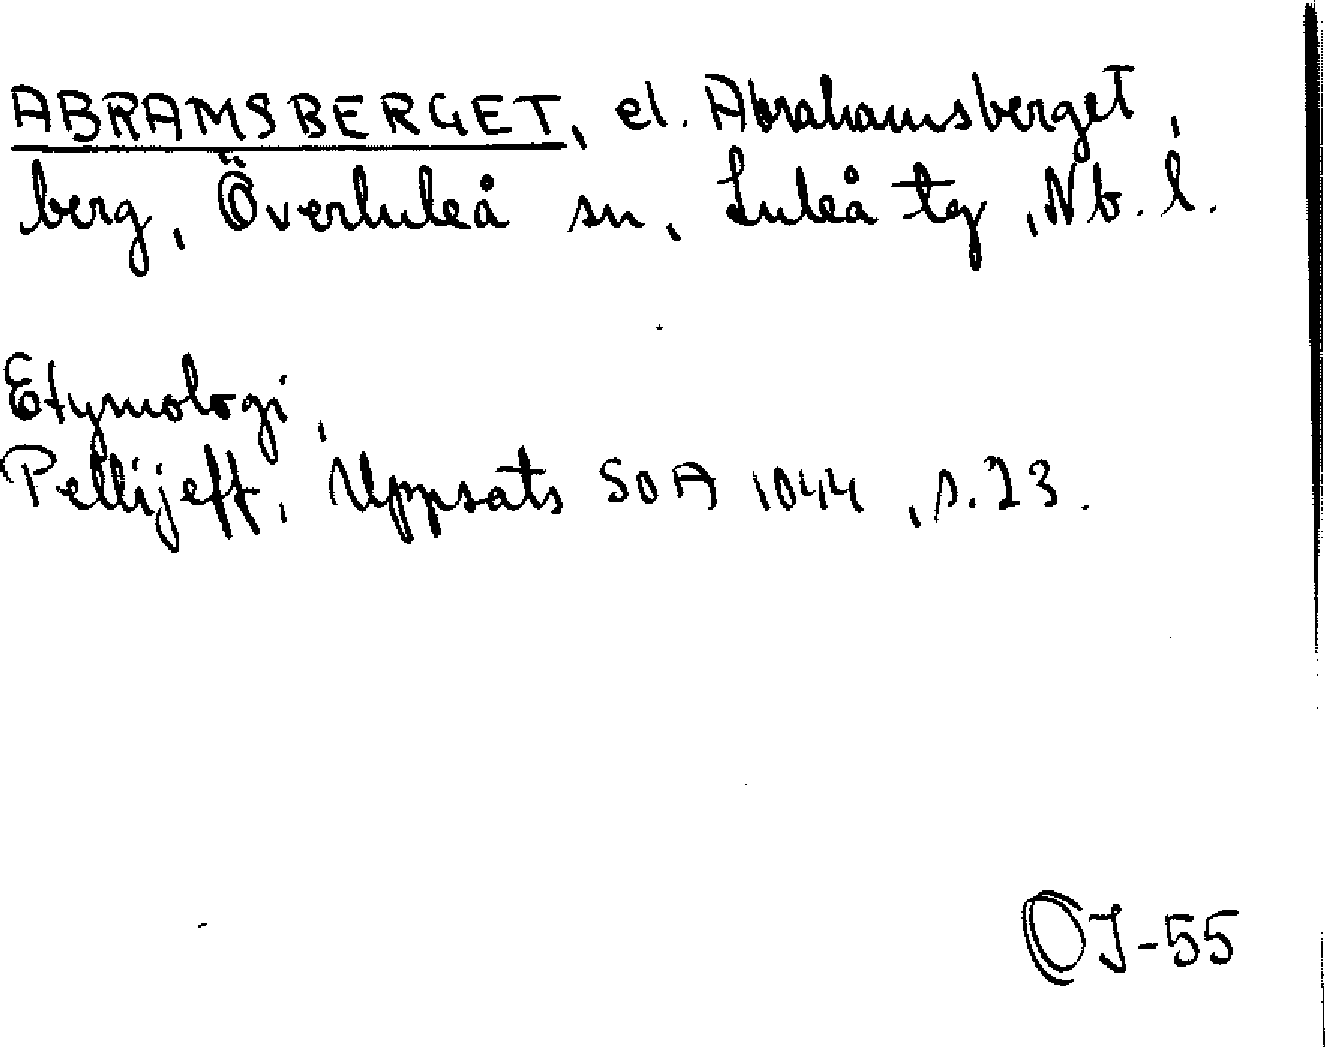 ABRAMSBERGET, el. Abrahamsberget,
berg, Överluleå sn, Luleå tg, Nb. l.
Etymologi,
Pellijeff, Uppsats SOA 1044, s. 23.
OJ-55